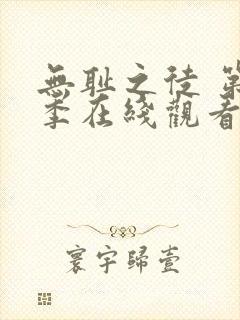 無耻之徒 第
季在綫觀看
寰宇歸壹